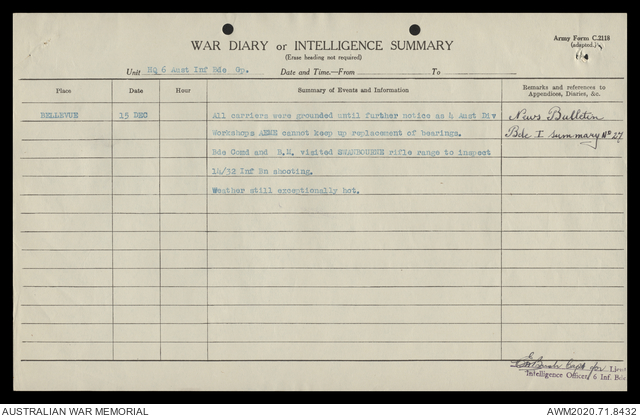 Army Form C.2118
(adapted.)
WAR DIARY or INTELLIGENCE SUMMARY
(Erase heading not required)
Unit HQ 6 Aust Inf Bde Gp. Date and Time.—From To
Place Date Hour Summary of Events and Information Remarks and references to Appendices, Diaries, &c.
BELLEVUE 15 DEC All carriers were grounded until further notice as 4 Aust Div News Bulletin
Workshops AEME cannot keep up replacement of bearings. Bde I. summary No 27
Bde Comd and B.M. visited SWANBOURNE rifle range to inspect
14/32 Inf Bn shooting.
Weather still exceptionally hot.
Capt for Lieut
Intelligence Officer, 6 Inf. Bde
AUSTRALIAN WAR MEMORIAL AWM2020.71.8432